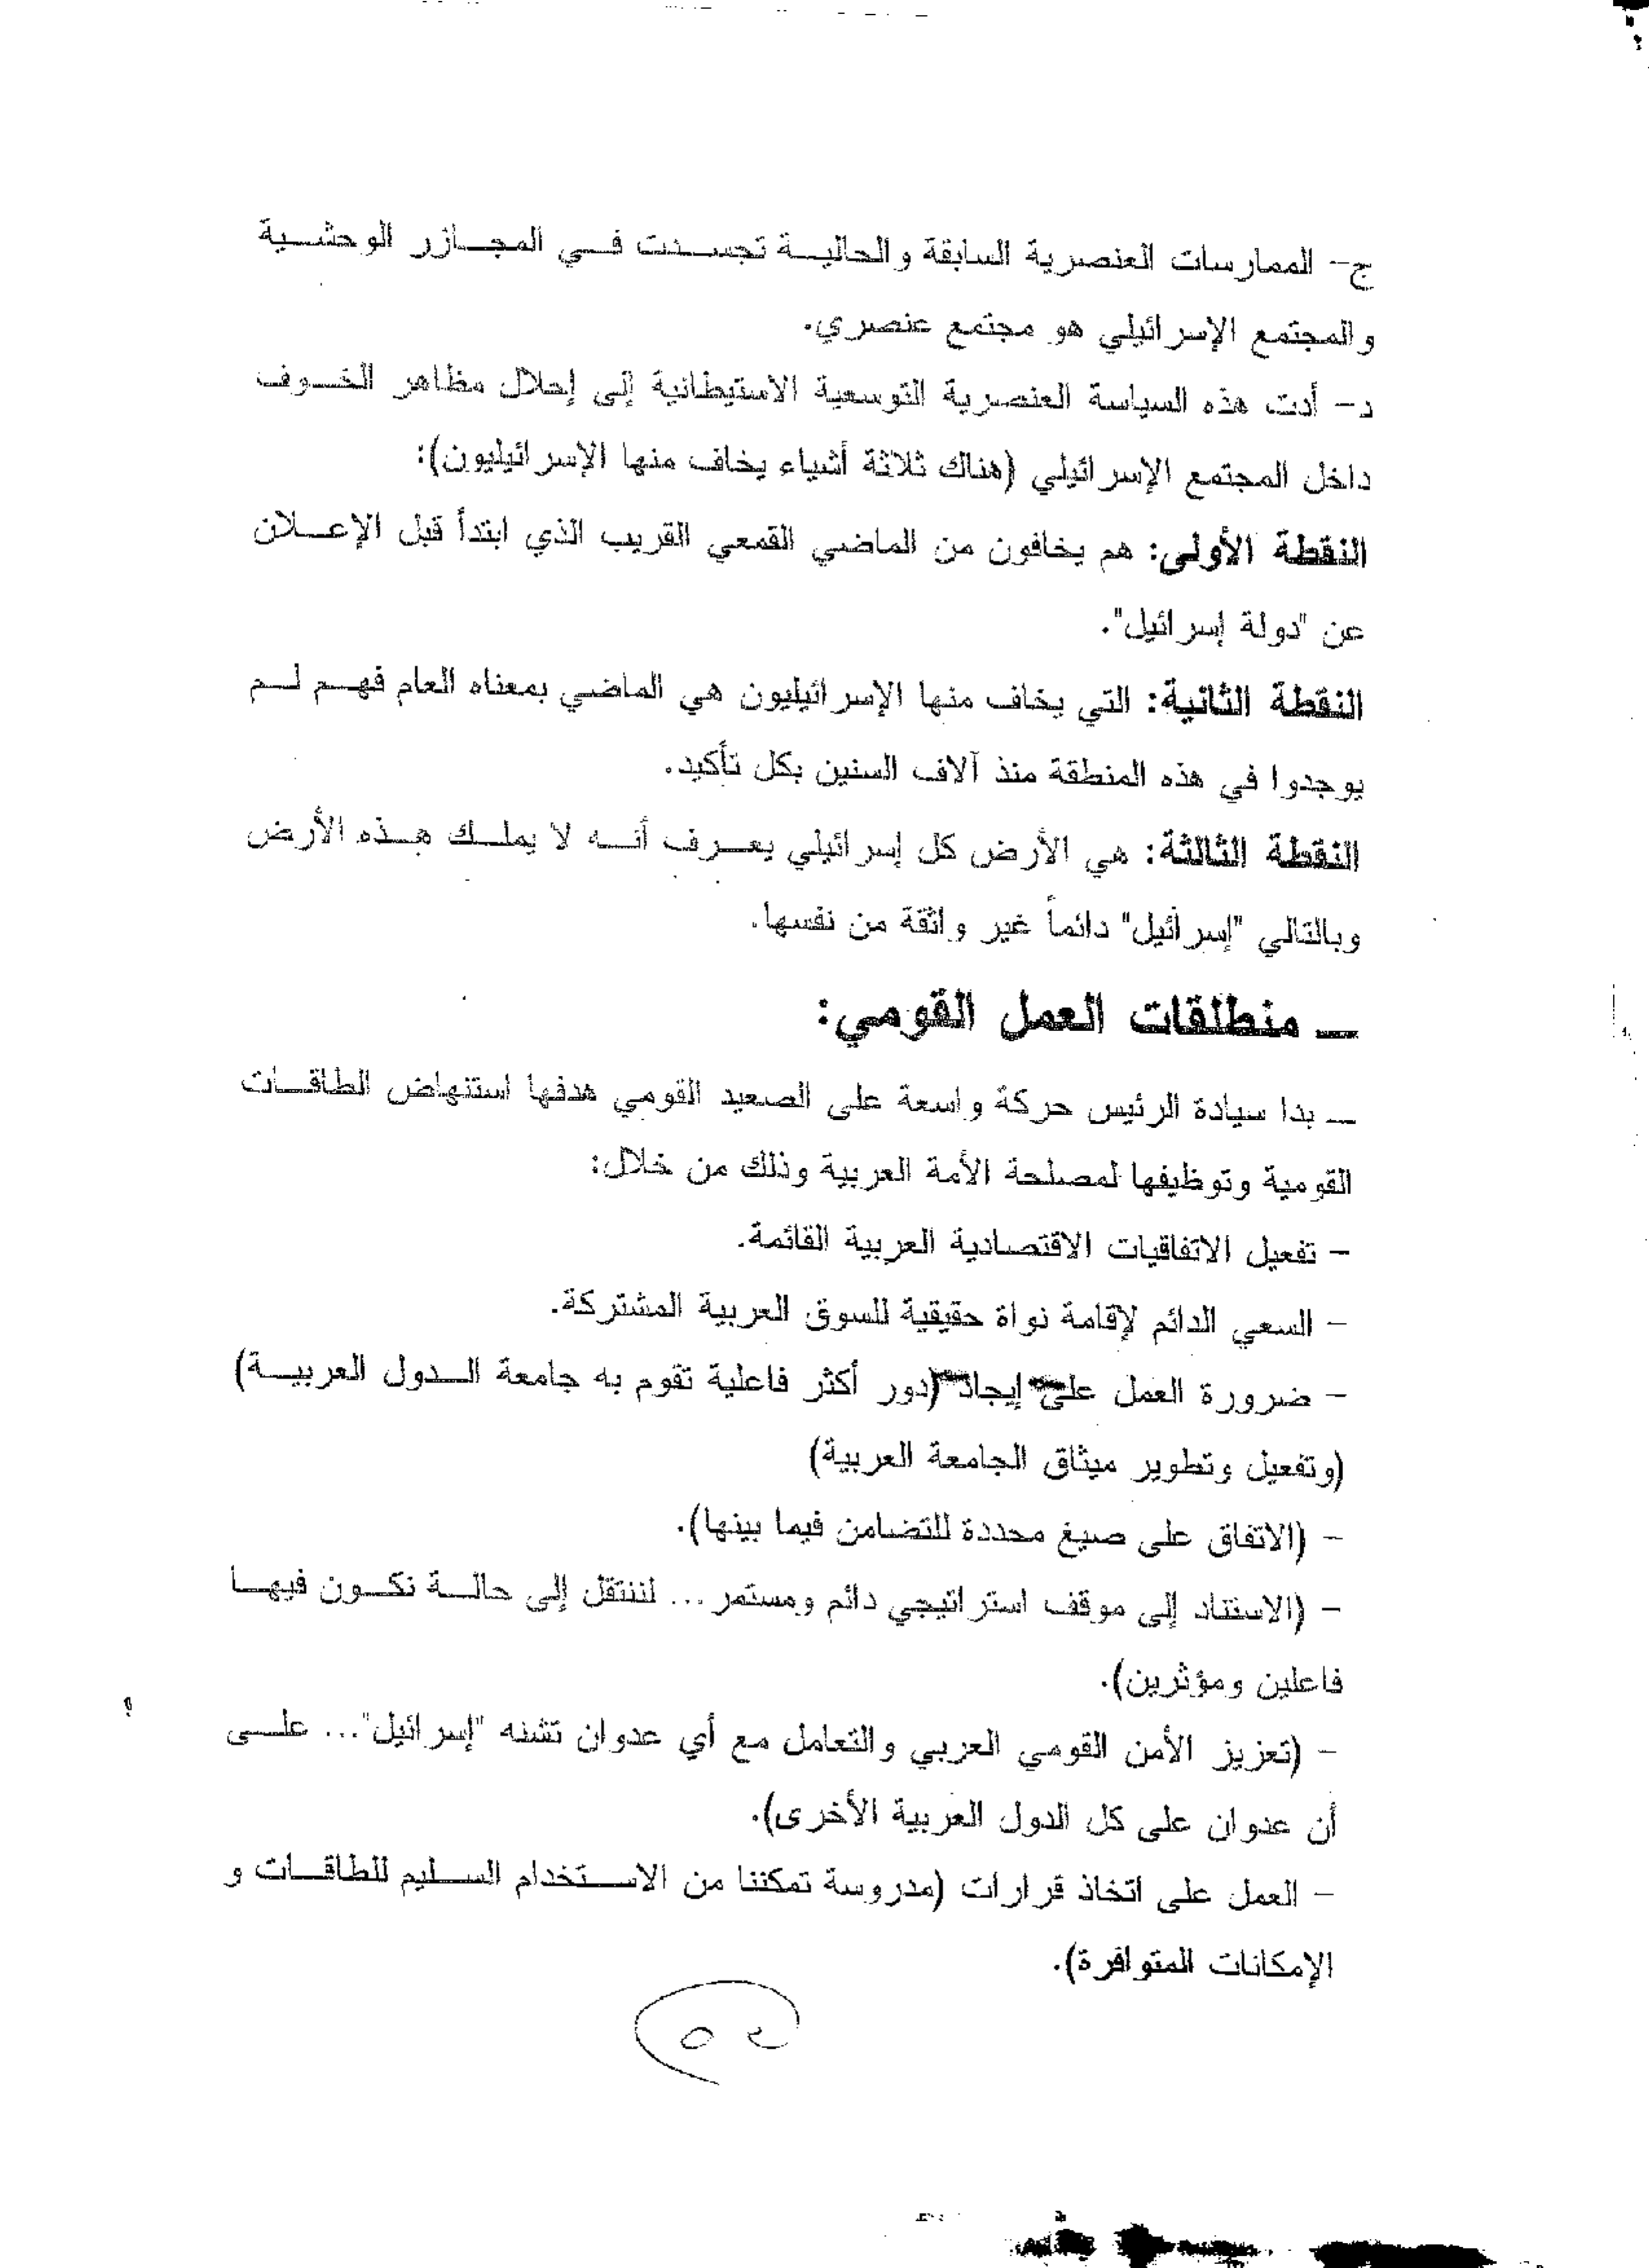 ج- الممارسات العنصرية السابقة والحالية تجسدت في المجازر الوحشية
والمجتمع الإسرائيلي هو مجتمع عنصري.
د- أدت هذه السياسة العنصرية التوسعية الاستيطانية إلى إحلال مظاهر الخوف
داخل المجتمع الإسرائيلي (هناك ثلاثة أشياء يخاف منها الإسرائيليون):
النقطة الأولى: هم يخافون من الماضي القمعي القريب الذي ابتدأ قبل الإعلان
عن "دولة إسرائيل".
النقطة الثانية: التي يخاف منها الإسرائيليون هي الماضي بمعناه العام فهم لم
يوجدوا في هذه المنطقة منذ آلاف السنين بكل تأكيد.
النقطة الثالثة: هي الأرض كل إسرائيلي يعرف أنه لا يملك هذه الأرض
وبالتالي "إسرائيل" دائماً غير واثقة من نفسها.
ــ منطلقات العمل القومي:
ــ بدا سيادة الرئيس حركة واسعة على الصعيد القومي هدفها استنهاض الطاقات
القومية وتوظيفها لمصلحة الأمة العربية وذلك من خلال:
- تفعيل الاتفاقيات الاقتصادية العربية القائمة.
- السعي الدائم لإقامة نواة حقيقية للسوق العربية المشتركة.
- ضرورة العمل على إيجاد (دور أكثر فاعلية تقوم به جامعة الدول العربية)
(وتفعيل وتطوير ميثاق الجامعة العربية)
- (الاتفاق على صيغ محددة للتضامن فيما بينها).
- (الاستناد إلى موقف استراتيجي دائم ومستمر... لننتقل إلى حالة نكون فيها
فاعلين ومؤثرين).
- (تعزيز الأمن القومي العربي والتعامل مع أي عدوان تشنه "إسرائيل"... على
أن عدوان على كل الدول العربية الأخرى).
- العمل على اتخاذ قرارات (مدروسة تمكننا من الاستخدام السليم للطاقات و
الإمكانات المتوافرة).